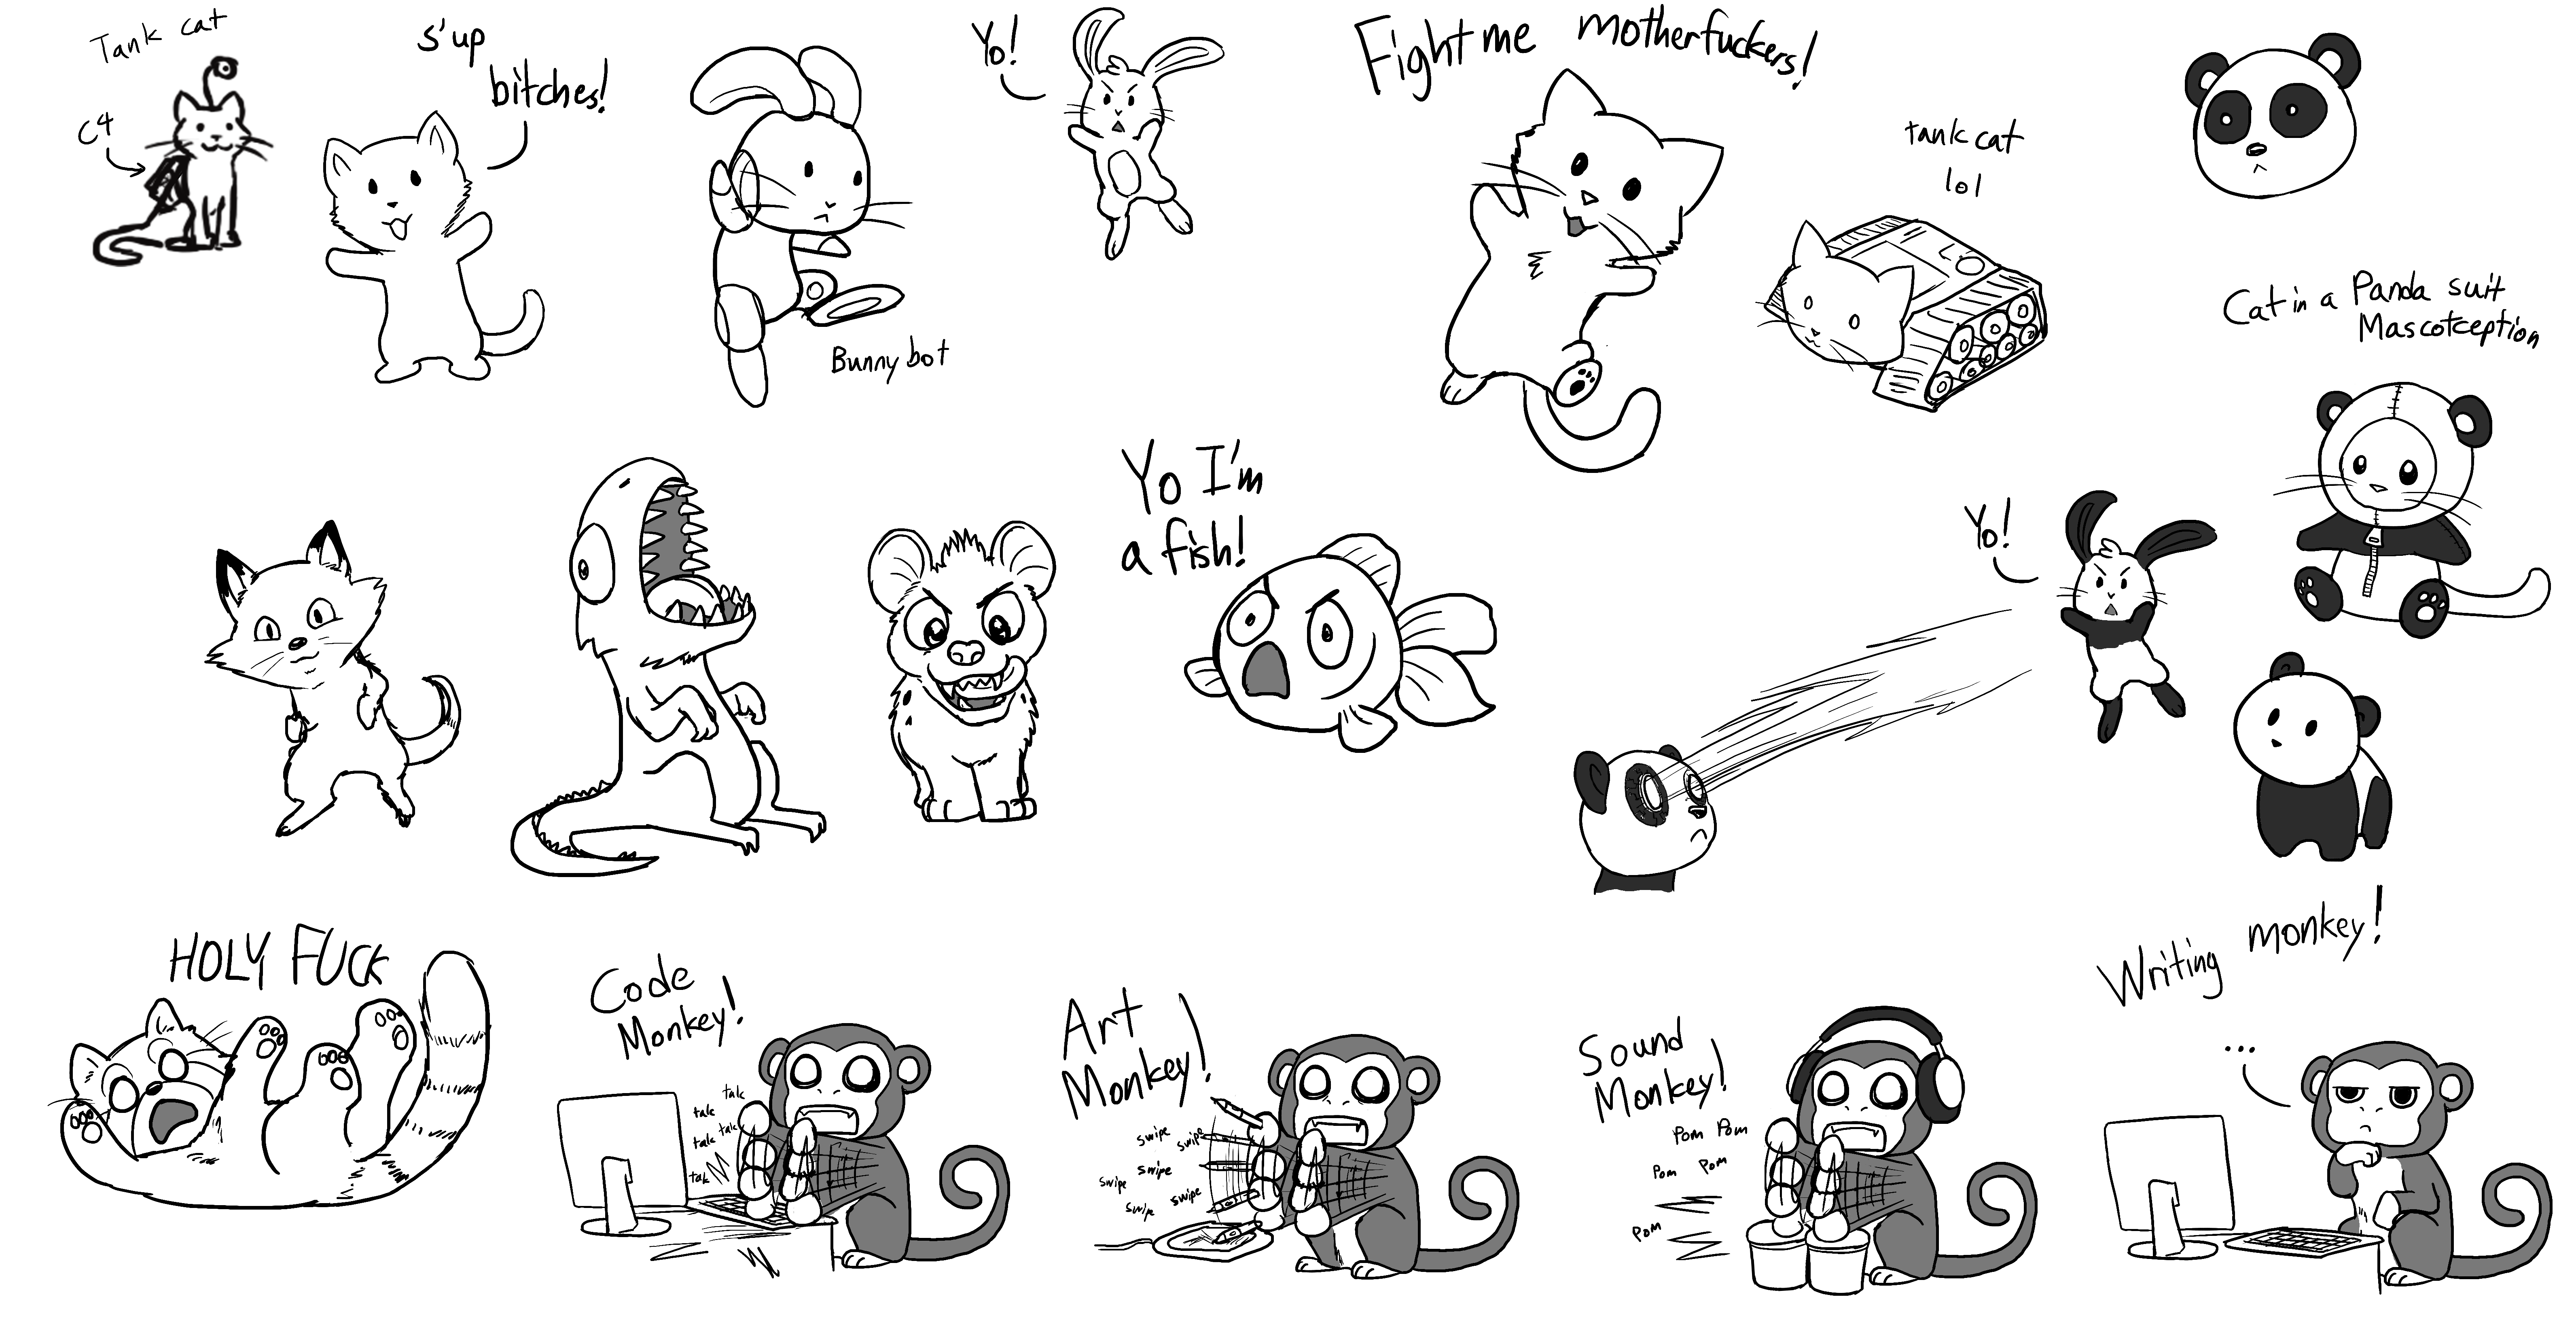 Tank cat
C4
S'up
bitches!
Bunny bot
Yo!
Fight me motherfuckers!
tank cat
lol
Cat in a Panda suit
Mascotception
Yo I'm
a fish!
Yo!
HOLY FUCK
Code
Monkey!
talk
talk
talk talk
talk
Art
Monkey!
swipe swipe
swipe
swipe swipe
swipe
Sound
Monkey!
Pom Pom
Pom Pom
Pom
Writing monkey!
...